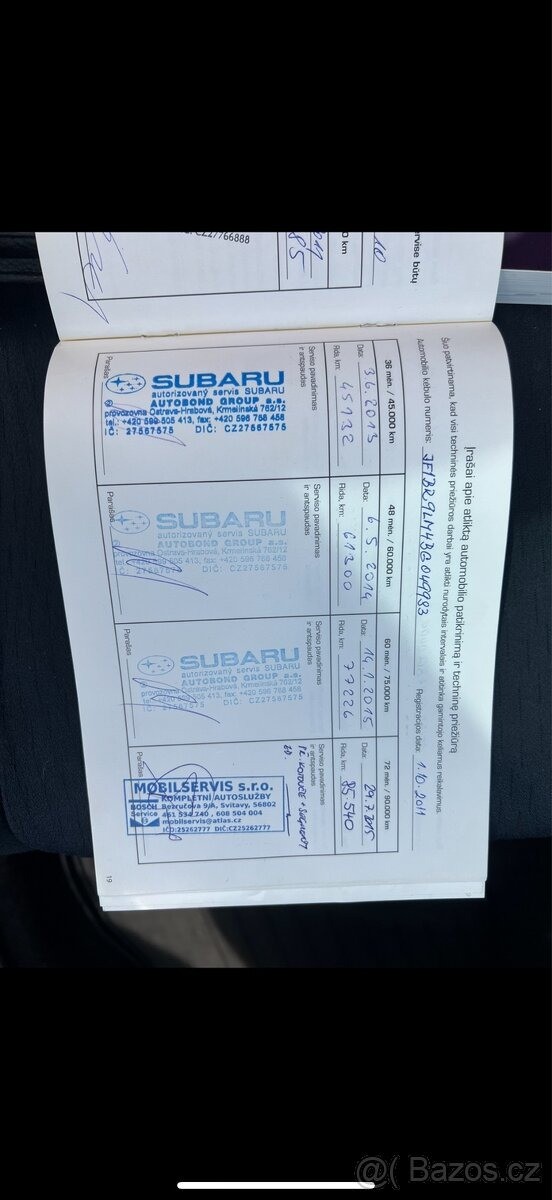 CZ27766888
rvise būtų
10
0 km
85
Įrašai apie atliktą automobilio patikrinimą ir techninę priežiūrą
Šuo patvirtinama, kad visi techninės priežiūros darbai yra atlikti nurodytais intervalais ir atitinka gamintojo keliamus reikalavimus.
Automobilio kėbulo numeris: JF1BR9LM4BG049983 Registracijos data: 1.10.2011
36 mėn. / 45.000 km
Data: 3.6.2013
Rida, km: 45132
Serviso pavadinimas
ir antspaudas
SUBARU
autorizovaný servis SUBARU
AUTOBOND GROUP a.s.
provozovna Ostrava-Hrabová, Krmelínská 762/12
tel.: +420 599 505 413, fax: +420 596 768 456
IČ: 27567575 DIČ: CZ27567575
Parašas
48 mėn. / 60.000 km
Data: 6.5.2014
Rida, km: 61300
Serviso pavadinimas
ir antspaudas
SUBARU
autorizovaný servis SUBARU
AUTOBOND GROUP a.s.
provozovna Ostrava-Hrabová, Krmelínská 762/12
tel.: +420 599 505 413, fax: +420 596 768 456
IČ: 27567575 DIČ: CZ27567575
Parašas
60 mėn. / 75.000 km
Data: 14.1.2015
Rida, km: 77226
Serviso pavadinimas
ir antspaudas
SUBARU
autorizovaný servis SUBARU
AUTOBOND GROUP a.s.
provozovna Ostrava-Hrabová, Krmelínská 762/12
tel.: +420 599 505 413, fax: +420 596 768 456
IČ: 27567575 DIČ: CZ27567575
Parašas
72 mėn. / 90.000 km
Data: 29.7.2015
Rida, km: 85.540
Serviso pavadinimas
ir antspaudas
PŘ. KOTOUČE + SEGMENTY
MOBILSERVIS s.r.o.
KOMPLETNÍ AUTOSLUŽBY
BOSCH Bezručova 9/A, Svitavy, 56802
Service 461 534 740, 608 504 004
mobilservis@atlas.cz
IČO:25262777 DIČ:CZ25262777
Parašas
19
@( Bazos.cz